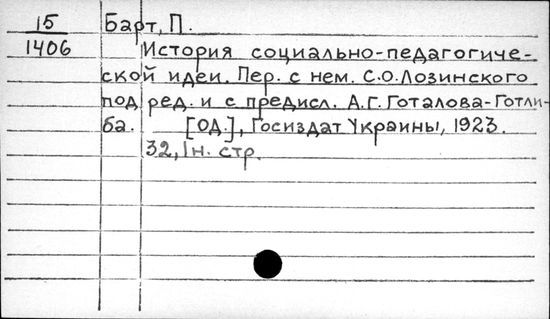 15
1406
Барт, П.
История социально-педагогиче-
ской идеи. Пер. с нем. С.О.Лозинского
под ред. и с предисл. А.Г. Готалова-Готли-
ба. [ОД.], Госиздат Украины, 1923.
32, 1н. стр.